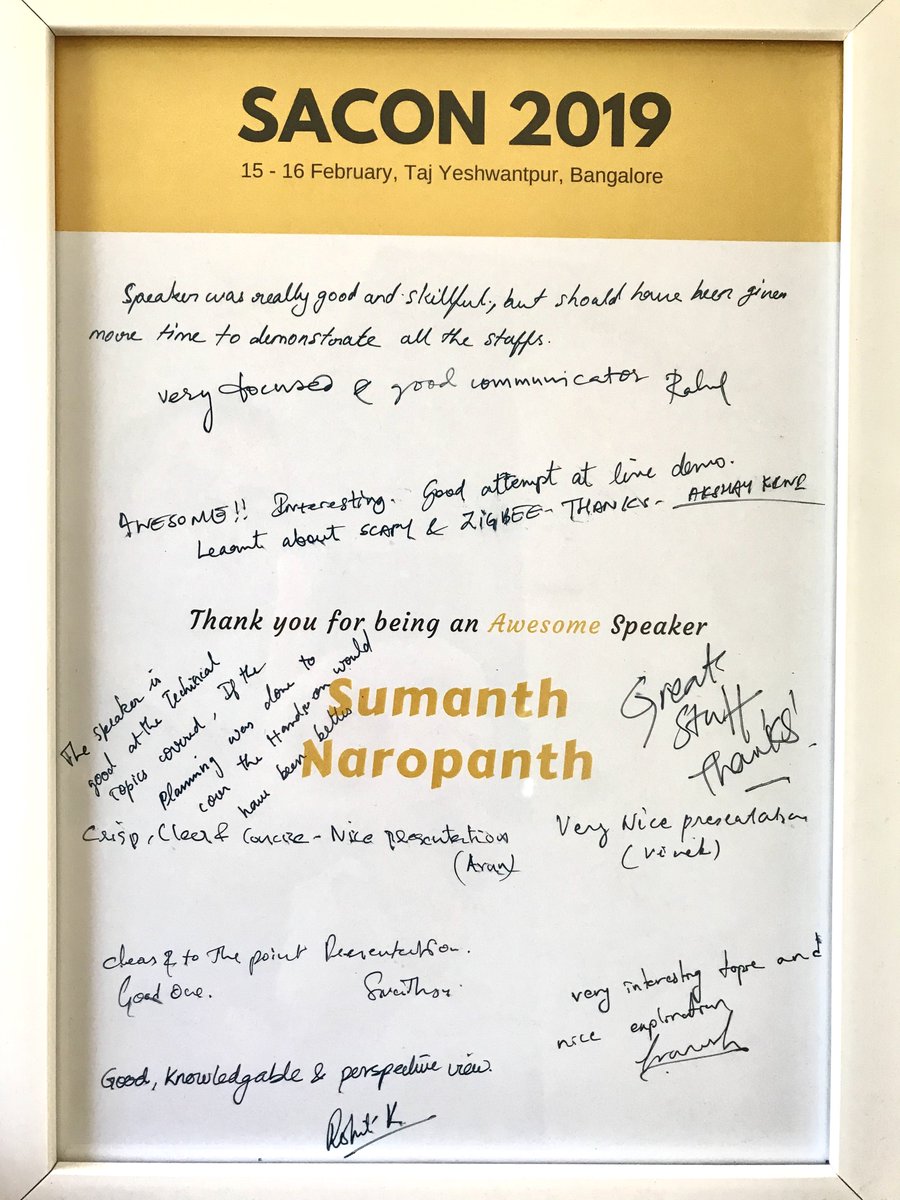 SACON 2019
15 - 16 February, Taj Yeshwantpur, Bangalore
Speaker was really good and skillful, but should have been given
more time to demonstrate all the staffs.
very focused & good communicator Rahul
AWESOME!! Interesting. Good attempt at live demo.
Learnt about SCAPY & ZIGBEE - THANKS - AKSHAY
Thank you for being an Awesome Speaker
Sumanth
Naropanth
The speaker is
good at the Technical
Topics covered, If the
Planning was done to
cover the Hands-on would
have been better
Great
Stuff
Thanks!
Crisp, Clear & Concise - Nice presentation
(Arun)
Very Nice presentation
(Vivek)
clear & to the point Presentation.
Good one.
very interesting topic and
nice explanation
Good, Knowledgable & perspective view.
Rohit K.